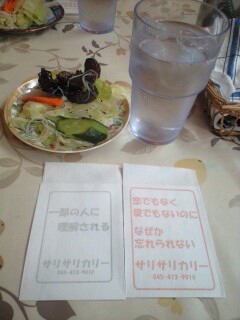 一部の人に
理解される
サリサリカリー
045-473-9910
恋でもなく
愛でもないのに
なぜか
忘れられない
サリサリカリー
045-473-9910